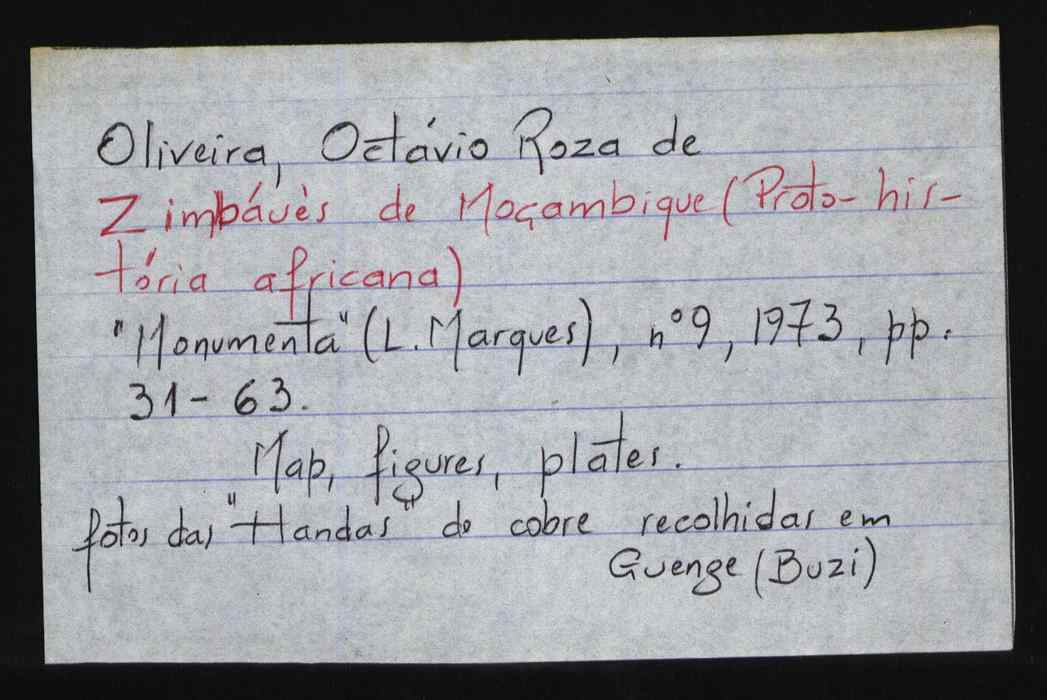 Oliveira, Octávio Roza de
Zimbáuès de Moçambique (Proto-his-
tória africana)
"Monumenta" (L. Marques), nº 9, 1973, pp.
31-63.
Map, figures, plates.
fotos das "Handas" de cobre recolhidas em
Guenge (Buzi)